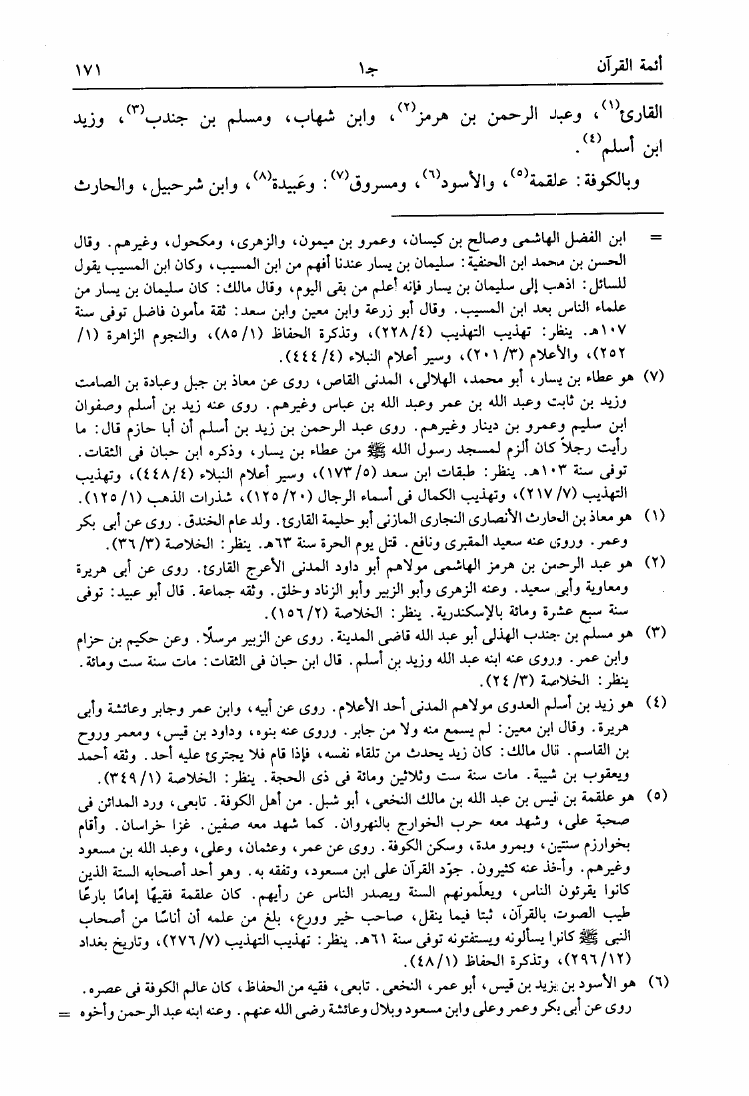 أئمة القرآن جـ١ ١٧١
القارئ(١)، وعبد الرحمن بن هرمز(٢)، وابن شهاب، ومسلم بن جندب(٣)، وزيد
ابن أسلم(٤).
وبالكوفة: علقمة(٥)، والأسود(٦)، ومسروق(٧): وعَبيدة(٨)، وابن شرحبيل، والحارث
= ابن الفضل الهاشمى وصالح بن كيسان، وعمرو بن ميمون، والزهرى، ومكحول، وغيرهم. وقال
الحسن بن محمد ابن الحنفية: سليمان بن يسار عندنا أفهم من ابن المسيب، وكان ابن المسيب يقول
للسائل: اذهب إلى سليمان بن يسار فإنه أعلم من بقى اليوم، وقال مالك: كان سليمان بن يسار من
علماء الناس بعد ابن المسيب. وقال أبو زرعة وابن معين وابن سعد: ثقة مأمون فاضل توفى سنة
١٠٧هـ. ينظر: تهذيب التهذيب (٢٢٨/٤)، وتذكرة الحفاظ (٨٥/١)، والنجوم الزاهرة (١/
٢٥٢)، والأعلام (٢٠١/٣)، وسير أعلام النبلاء (٤٤٤/٤).
(٧) هو عطاء بن يسار، أبو محمد، الهلالى، المدنى القاص، روى عن معاذ بن جبل وعبادة بن الصامت
وزيد بن ثابت وعبد الله بن عمر وعبد الله بن عباس وغيرهم. روى عنه زيد بن أسلم وصفوان
ابن سليم وعمرو بن دينار وغيرهم. روى عبد الرحمن بن زيد بن أسلم أن أبا حازم قال: ما
رأيت رجلاً كان ألزم لمسجد رسول الله ﷺ من عطاء بن يسار، وذكره ابن حبان فى الثقات.
توفى سنة ١٠٣هـ. ينظر: طبقات ابن سعد (١٧٣/٥)، وسير أعلام النبلاء (٤٤٨/٤)، وتهذيب
التهذيب (٢١٧/٧)، وتهذيب الكمال فى أسماء الرجال (١٢٥/٢٠)، شذرات الذهب (١٢٥/١).
(١) هو معاذ بن الحارث الأنصارى النجارى المازنى أبو حليمة القارئ. ولد عام الخندق. روى عن أبى بكر
وعمر. وروى عنه سعيد المقبرى ونافع. قتل يوم الحرة سنة ٦٣هـ. ينظر: الخلاصة (٣٦/٣).
(٢) هو عبد الرحمن بن هرمز الهاشمى مولاهم أبو داود المدنى الأعرج القارئ. روى عن أبى هريرة
ومعاوية وأبى سعيد. وعنه الزهرى وأبو الزبير وأبو الزناد وخلق. وثقه جماعة. قال أبو عبيد: توفى
سنة سبع عشرة ومائة بالإسكندرية. ينظر: الخلاصة (١٥٦/٢).
(٣) هو مسلم بن جندب الهذلى أبو عبد الله قاضى المدينة. روى عن الزبير مرسلًا. وعن حكيم بن حزام
وابن عمر. وروى عنه ابنه عبد الله وزيد بن أسلم. قال ابن حبان فى الثقات: مات سنة ست ومائة.
ينظر: الخلاصة (٢٤/٣).
(٤) هو زيد بن أسلم العدوى مولاهم المدنى أحد الأعلام. روى عن أبيه، وابن عمر وجابر وعائشة وأبى
هريرة. وقال ابن معين: لم يسمع منه ولا من جابر. وروى عنه بنوه، وداود بن قيس، ومعمر وروح
بن القاسم. قال مالك: كان زيد يحدث من تلقاء نفسه، فإذا قام فلا يجترئ عليه أحد. وثقه أحمد
ويعقوب بن شيبة. مات سنة ست وثلاثين ومائة فى ذى الحجة. ينظر: الخلاصة (٣٤٩/١).
(٥) هو علقمة بن قيس بن عبد الله بن مالك النخعى، أبو شبل. من أهل الكوفة. تابعى، ورد المدائن فى
صحبة على، وشهد معه حرب الخوارج بالنهروان. كما شهد معه صفين. غزا خراسان. وأقام
بخوارزم سنتين، وبمرو مدة، وسكن الكوفة. روى عن عمر، وعثمان، وعلى، وعبد الله بن مسعود
وغيرهم. وأخذ عنه كثيرون. جوّد القرآن على ابن مسعود، وتفقه به. وهو أحد أصحابه الستة الذين
كانوا يقرئون الناس، ويعلّمونهم السنة ويصدر الناس عن رأيهم. كان علقمة فقيهًا إمامًا بارعًا
طيب الصوت بالقرآن، ثبتا فيما ينقل، صاحب خير وورع، بلغ من علمه أن أناسًا من أصحاب
النبى ﷺ كانوا يسألونه ويستفتونه توفى سنة ٦١هـ. ينظر: تهذيب التهذيب (٢٧٦/٧)، وتاريخ بغداد
(٢٩٦/١٢)، وتذكرة الحفاظ (٤٨/١).
(٦) هو الأسود بن يزيد بن قيس، أبو عمر، النخعى. تابعى، فقيه من الحفاظ، كان عالم الكوفة فى عصره.
روى عن أبى بكر وعمر وعلى وابن مسعود وبلال وعائشة رضى الله عنهم. وعنه ابنه عبد الرحمن وأخوه =